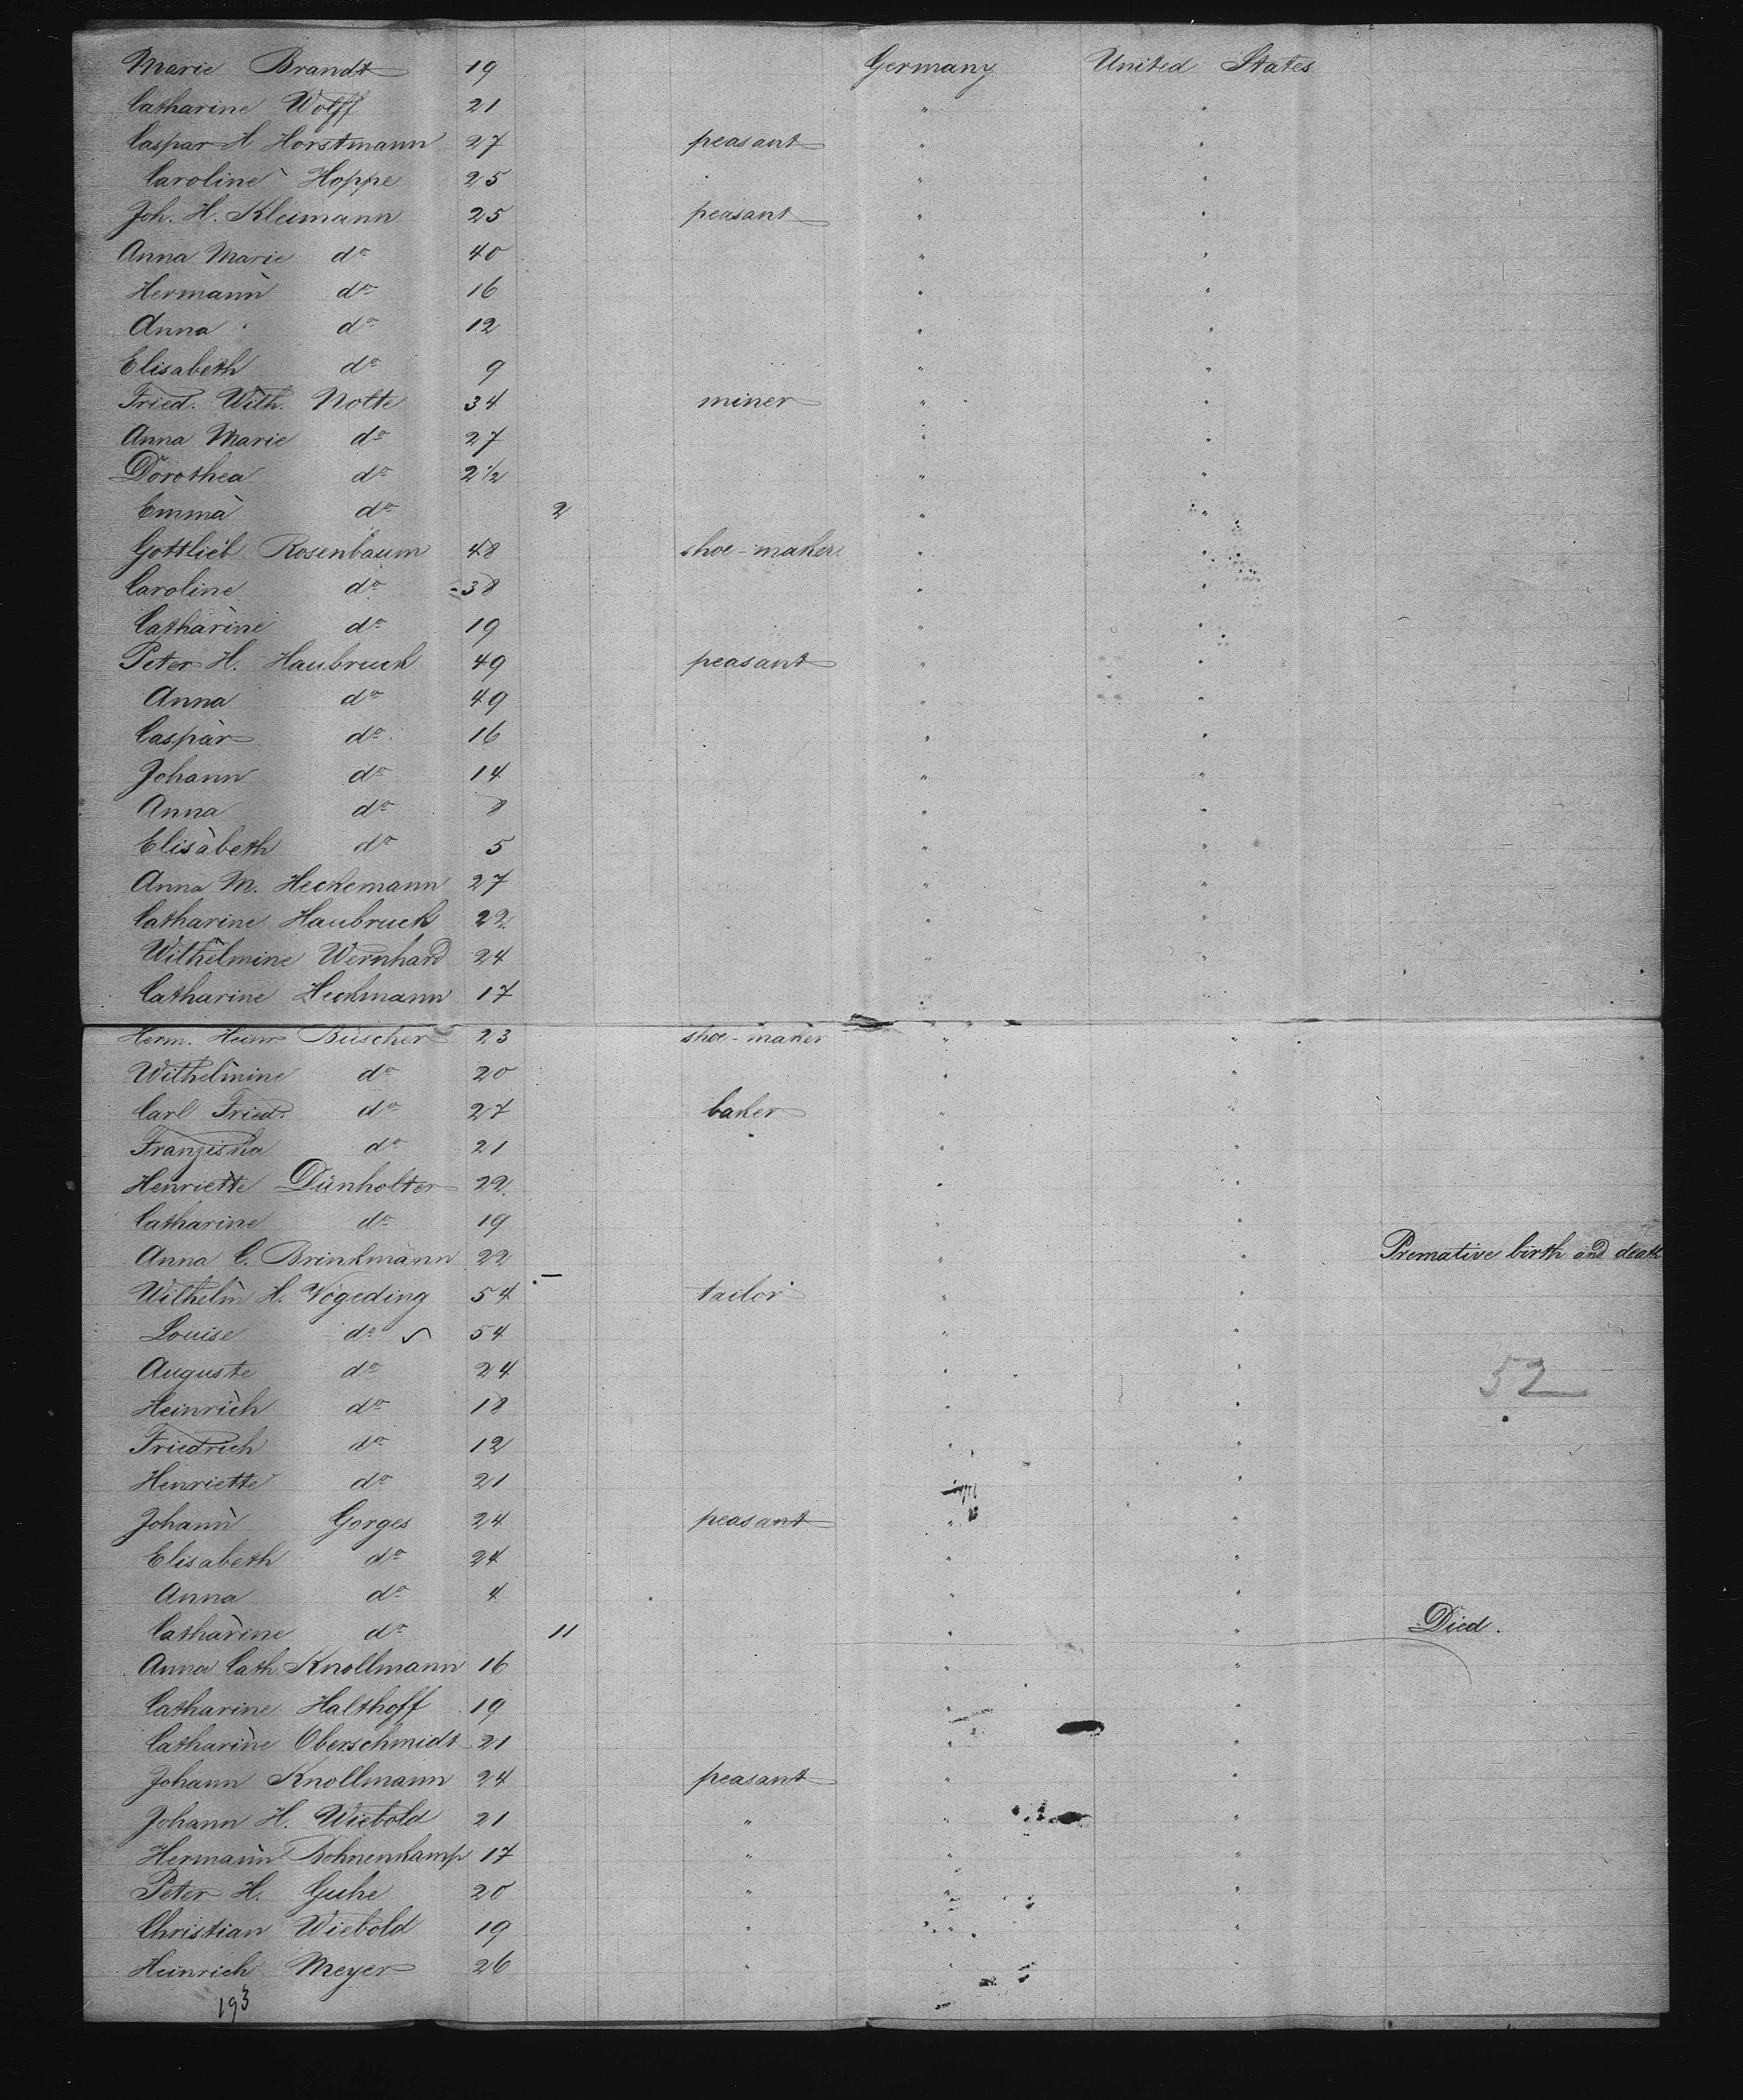 Marie Brandt 19 Germany United States
Catharine Wolff 21 " "
Caspar H Horstmann 27 peasant " "
Caroline Hoppe 25 " "
Joh. H. Kleimann 25 peasant " "
Anna Marie do 40 " "
Hermann do 16 " "
Anna do 12 " "
Elisabeth do 9 " "
Fried. Wilh. Nolte 34 miner " "
Anna Marie do 27 " "
Dorothea do 2 1/2 " "
Emma do 2 " "
Gottlieb Rosenbaum 48 shoe-maker " "
Caroline do 38 " "
Catharine do 19 " "
Peter H. Haubruck 49 peasant " "
Anna do 49 " "
Caspar do 16 " "
Johann do 14 " "
Anna do 8 " "
Elisabeth do 5 " "
Anna M. Heckemann 27 " "
Catharine Haubruck 22 " "
Wilhelmine Wernhard 24 " "
Catharine Heckmann 17 " "
Herm. Heinr Büscher 23 shoe-maker " "
Wilhelmine do 20 " "
Carl Fried. do 27 baker " "
Franziska do 21 " "
Henriette Dünholter 22 " "
Catharine do 19 " "
Anna C. Brinkmann 22 " " Premative birth and death
Wilhelm H. Vogeding 54 tailor " "
Louise do 54 " "
Auguste do 24 " "
52
Heinrich do 18 " "
Friedrich do 12 " "
Henriette do 21 " "
Johann Gorges 24 peasant " "
Elisabeth do 24 " "
Anna do 4 " "
Catharine do 11 " " Died.
Anna Cath. Knollmann 16 " "
Catharine Halthoff 19 " "
Catharine Oberschmidt 21 " "
Johann Knollmann 24 peasant " "
Johann H. Wiebold 21 " " "
Hermann Bohnenkamp 17 " " "
Peter H. Guhe 20 " " "
Christian Wiebold 19 " " "
Heinrich Meyer 26 " " "
193